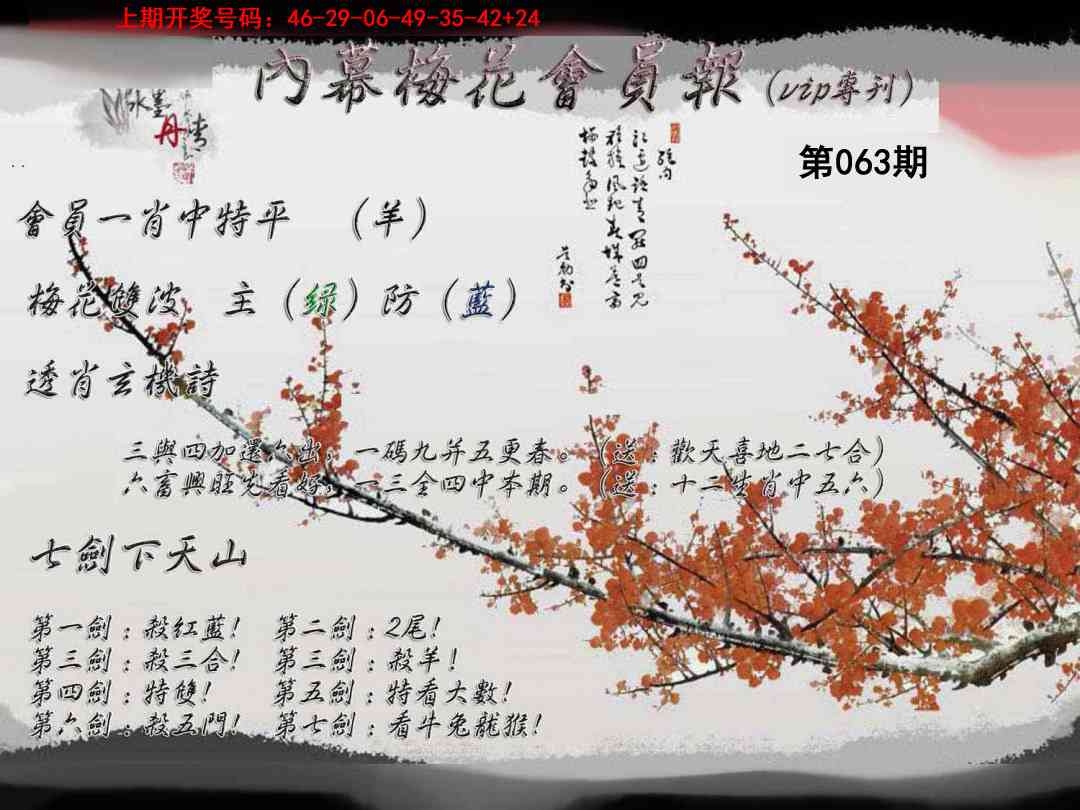 上期开奖号码：46-29-06-49-35-42+24
內幕梅花會員報（vip專刊）
水墨
丹情
第063期
會員一肖中特平　（羊）
梅花雙波　主（绿）防（藍）
透肖玄機詩
三與四加還入出，一碼九并五更春。（送：歡天喜地二七合）
六畜興旺先看好，一三全四中本期。（送：十二生肖中五六）
七劍下天山
第一劍：殺紅藍！　第二劍：2尾！
第三劍：殺三合！　第三劍：殺羊！
第四劍：特雙！　第五劍：特看大數！
第六劍：殺五門！　第七劍：看牛兔龍猴！